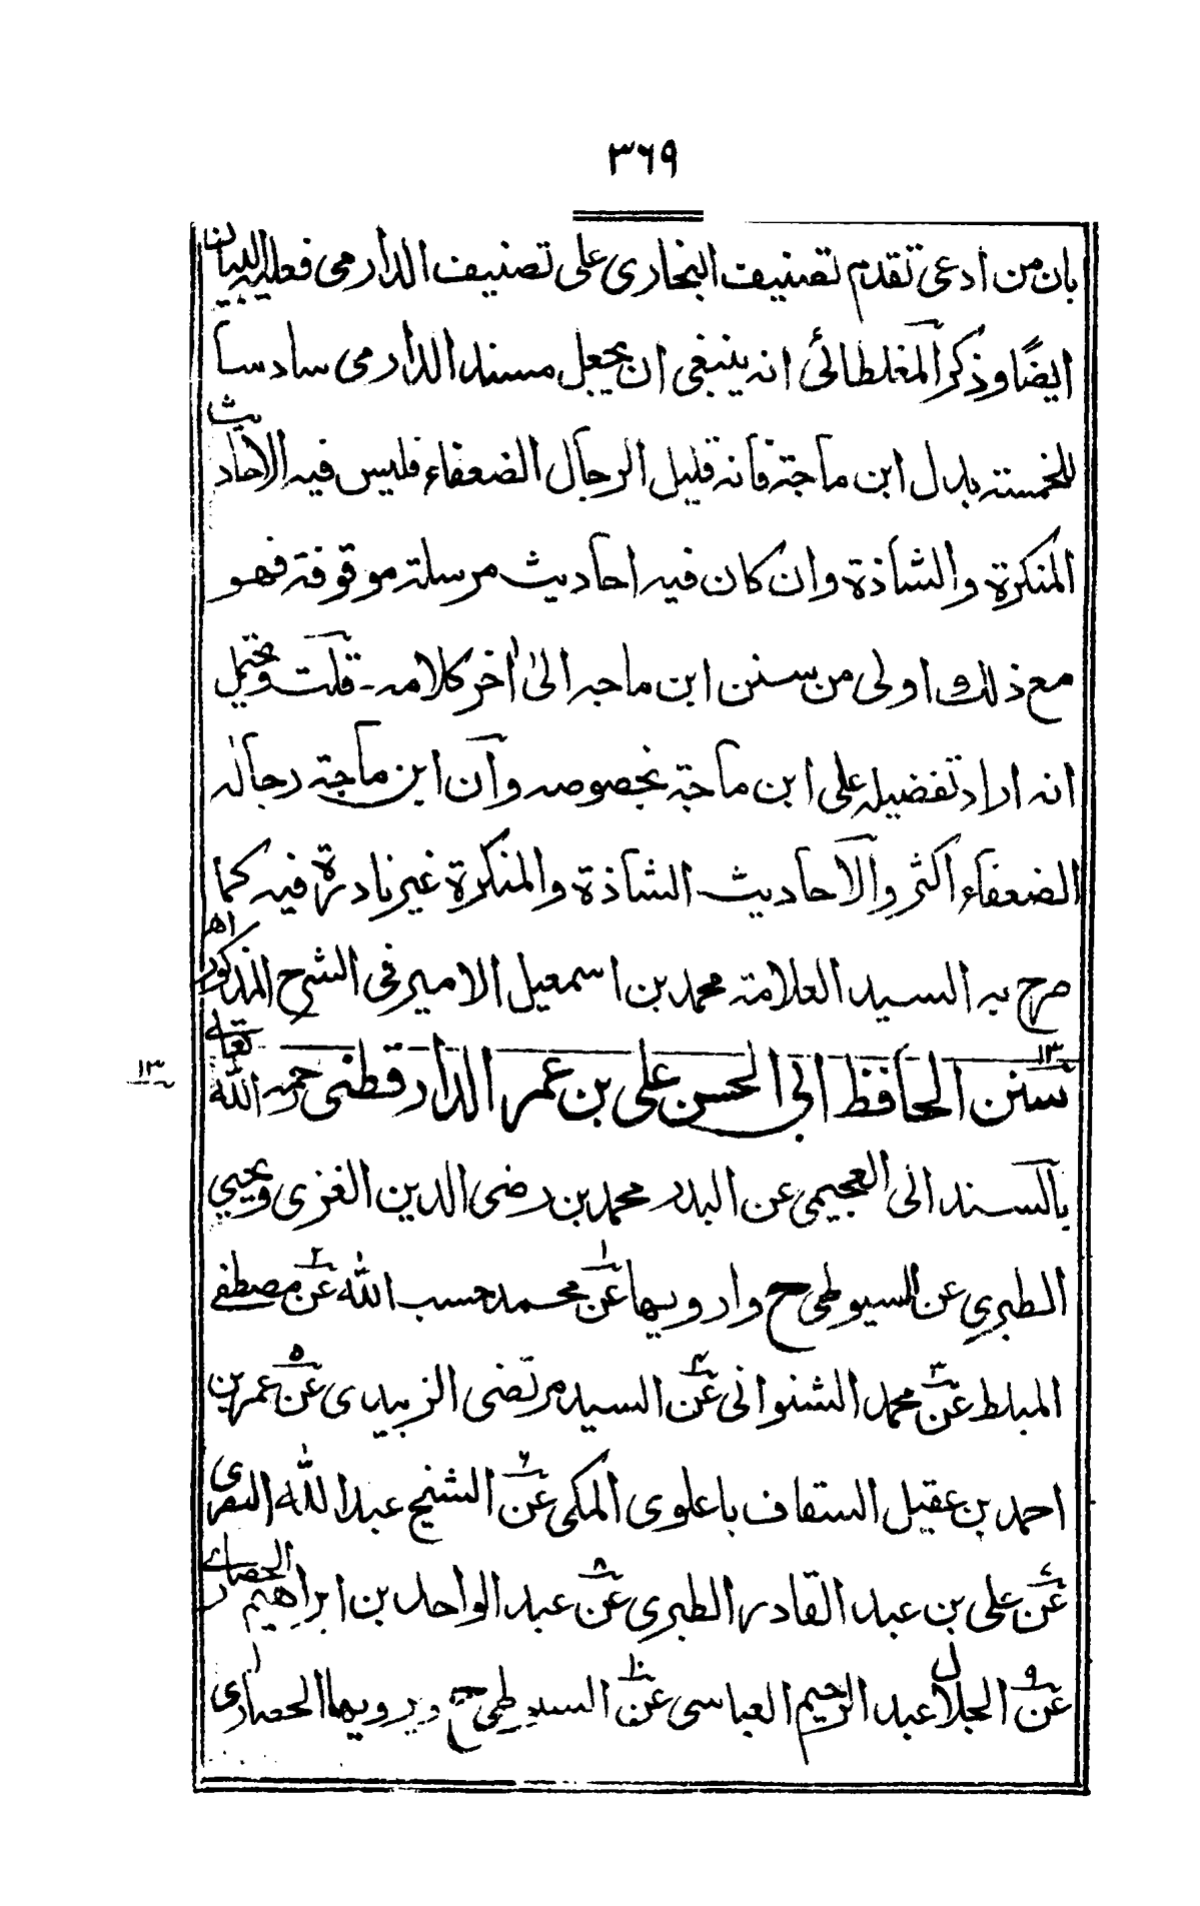 ٣٦٩
بان من ادعى تقدم تصنيف البخارى على تصنيف الدارمى فعليه البيان
ايضًا وذكر المغلطائى انه ينبغى ان يجعل مسند الدارمى سادسا
للخمسة بدل ابن ماجة فانه قليل الرجال الضعفاء فليس فيه الاحاديث
المنكرة والشاذة وان كان فيه احاديث مرسلة موقوفة فهو
مع ذلك اولى من سنن ابن ماجه الىٰ اٰخر كلامه - قلت ويحتمل
انه اراد تفضيله على ابن ماجة بخصوصه وان ابن ماجة رجاله
الضعفاء اكثر والاحاديث الشاذة والمنكرة غير نادرة فيه كما
صرح به السيد العلامة محمد بن اسمعيل الامير فى الشرح المذكور اھ
١٣ سنن الحافظ ابى الحسن على بن عمر الدارقطنى رحمه الله تعالے
١٣
بالسند الى العجيمى عن البدر محمد بن رضى الدين الغزى ويحيي
الطبرى عن السيوطى ح وارويها عن١ محمد حسب الله عن٢ مصطفے
المبلط عن٣ محمد الشنوانى عن٤ السيد مرتضى الزبيدى عن٥ عمر بن
احمد بن عقيل السقاف باعلوى المكى عن٦ الشيخ عبد الله البصرى
عن على بن عبد القادر الطبرى عن٨ عبد الواحد بن ابراهيم الحصارے
عن٩ الجلال عبد الرحيم العباسى عن١٠ السيوطى ح ويرويها الحصارى